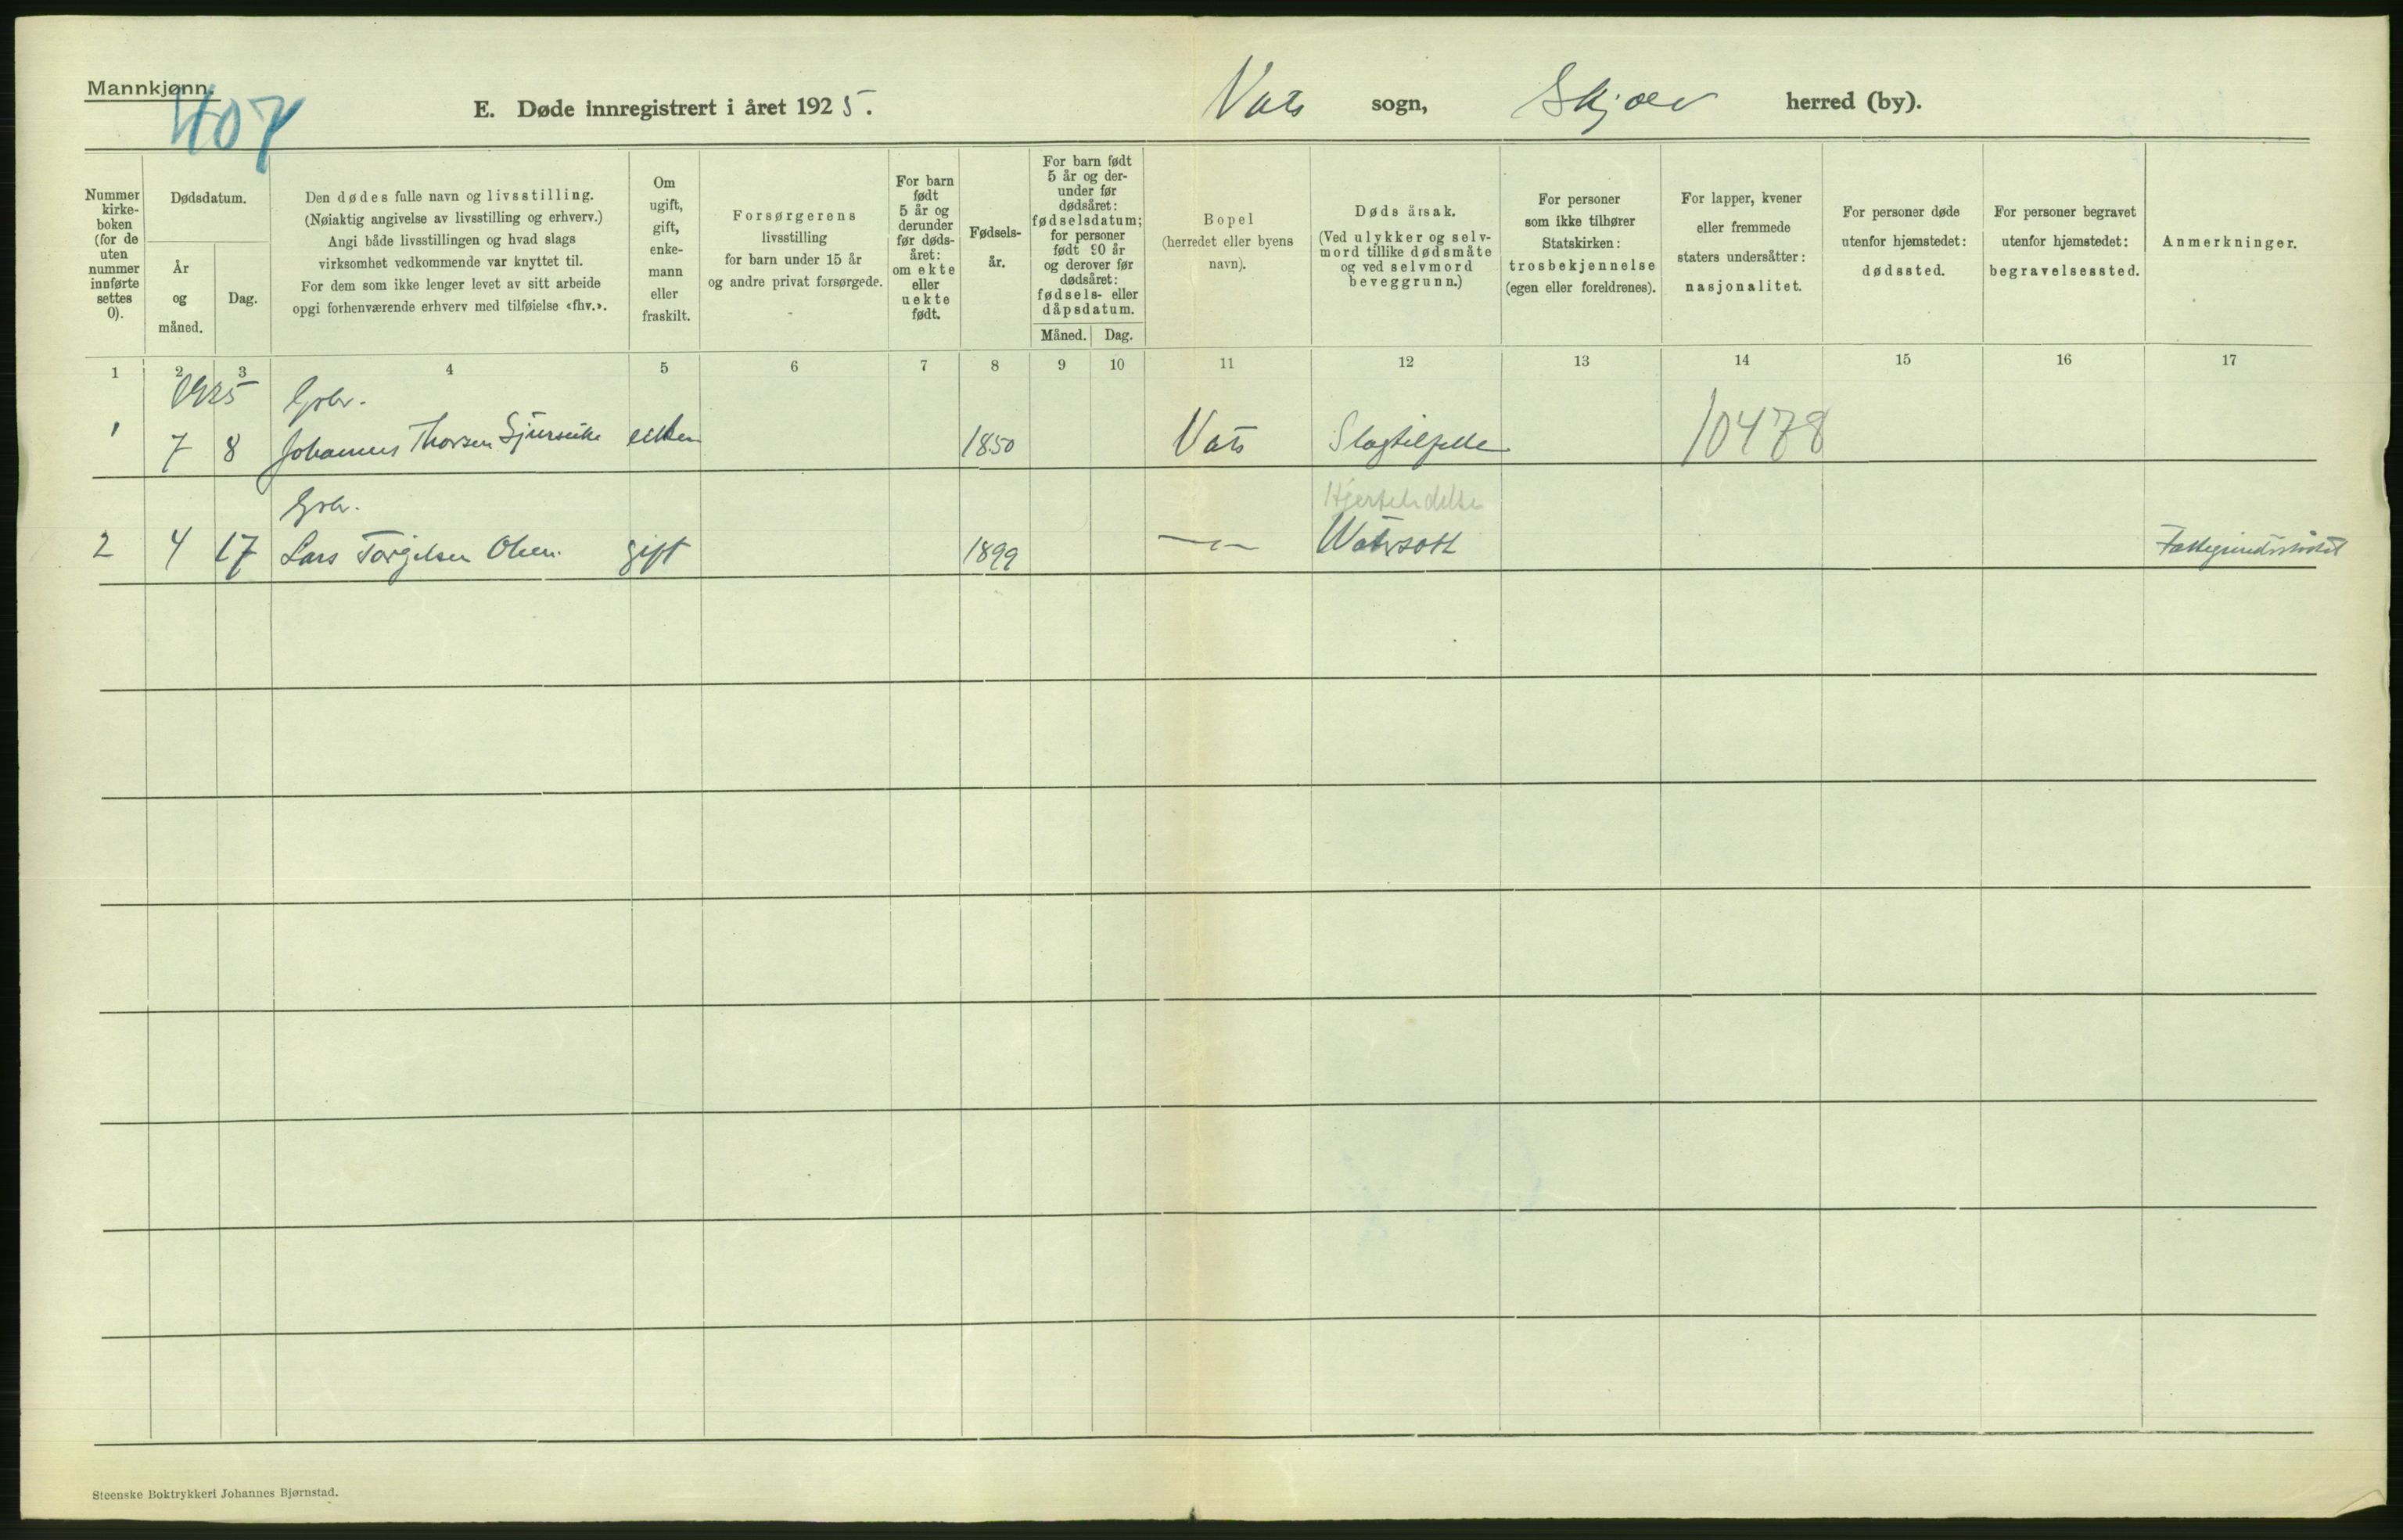 Mannkjønn.
407
E. Døde innregistrert i året 1925.
Vats sogn, Skjold herred (by).
Nummer
kirke-
boken
(for de
uten
nummer
innførte
settes
0).
Dødsdatum.
År
og
måned.
Dag.
Den dødes fulle navn og livsstilling.
(Nøiaktig angivelse av livsstilling og erhverv.)
Angi både livsstillingen og hvad slags
virksomhet vedkommende var knyttet til.
For dem som ikke lenger levet av sitt arbeide
opgi forhenværende erhverv med tilføielse «fhv.».
Om
ugift,
gift,
enke-
mann
eller
fraskilt.
Forsørgerens
livsstilling
for barn under 15 år
og andre privat forsørgede.
For barn
født
5 år og
derunder
før døds-
året:
om ekte
eller
uekte
født.
Fødsels-
år.
For barn født
5 år og der-
under før
dødsåret:
fødselsdatum;
for personer
født 90 år
og derover før
dødsåret:
fødsels- eller
dåpsdatum.
Måned. Dag.
Bopel
(herredet eller byens
navn).
Dødsårsak.
(Ved ulykker og selv-
mord tillike dødsmåte
og ved selvmord
beveggrunn.)
For personer
som ikke tilhører
Statskirken:
trosbekjennelse
(egen eller foreldrenes).
For lapper, kvener
eller fremmede
staters undersåtter:
nasjonalitet.
For personer døde
utenfor hjemstedet:
dødssted.
For personer begravet
utenfor hjemstedet:
begravelsessted.
Anmerkninger.
1 2 3 4 5 6 7 8 9 10 11 12 13 14 15 16 17
1925 Gbr.
1 7 8 Johannes Thorsen 1850 Vats Slagtilfelle 10478
Gbr. Hjertelidelse
2 4 17 Lars Torgilsen Olsen gift 1899 Watersott
Steenske Boktrykkeri Johannes Bjørnstad.